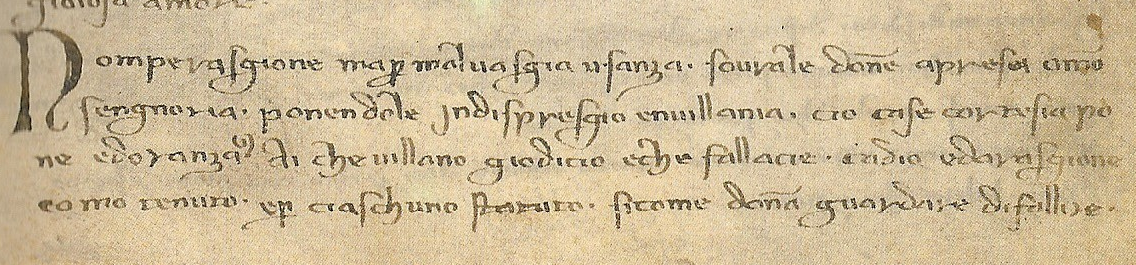 gioiosa amore.
Nomperasgione map malvasgia usanza. sovrale done apreso omo
sengnoria. ponendole jndispresgio envillania. cio case cortesia po
ne edoranza Ai che villano giodicio eche fallacie. cadio edarasgione
como tenuto. ep ciaschuno statuto. sicome dona guardare difallire.